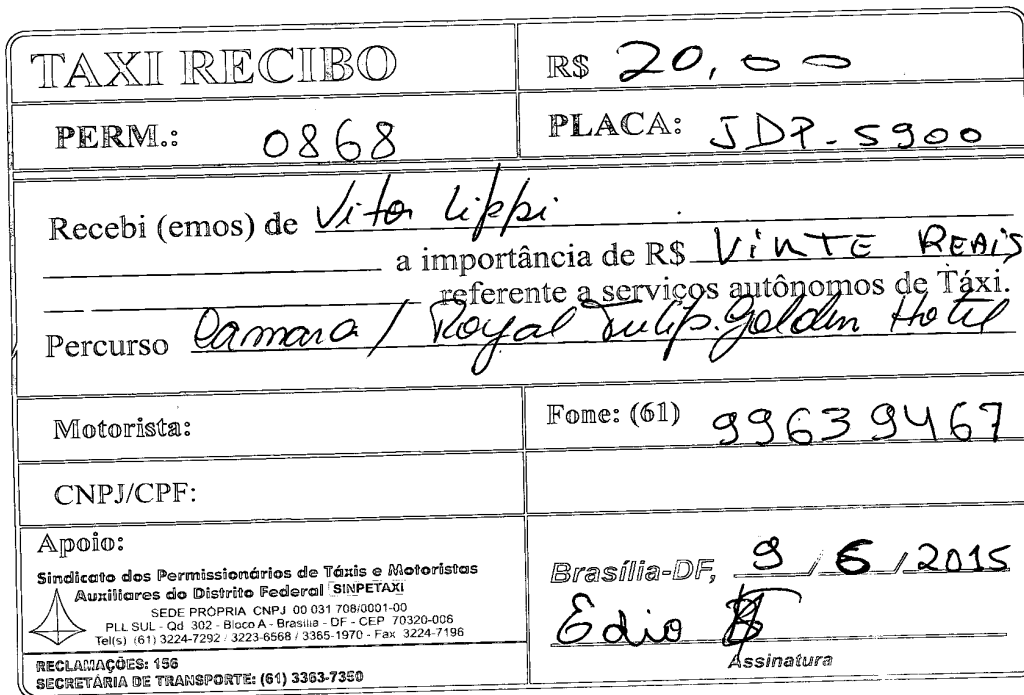 TAXI RECIBO
R$ 20,00
PERM.: 0868
PLACA: JDP-5900
Recebi (emos) de Vitor Lippi
a importância de R$ VINTE REAIS
referente a serviços autônomos de Táxi.
Percurso Camara / Royal Tulip. Golden Hotel
Motorista:
Fone: (61) 99639467
CNPJ/CPF:
Apoio:
Sindicato dos Permissionários de Táxis e Motoristas
Auxiliares do Distrito Federal SINPETAXI
SEDE PRÓPRIA CNPJ 00 031 708/0001-00
PLL SUL - Qd 302 - Bloco A - Brasília - DF - CEP 70320-006
Tel(s) (61) 3224-7292 / 3223-6568 / 3365-1970 - Fax 3224-7196
RECLAMAÇÕES: 156
SECRETÁRIA DE TRANSPORTE: (61) 3363-7350
Brasília-DF, 9 / 6 / 2015
Edio
Assinatura